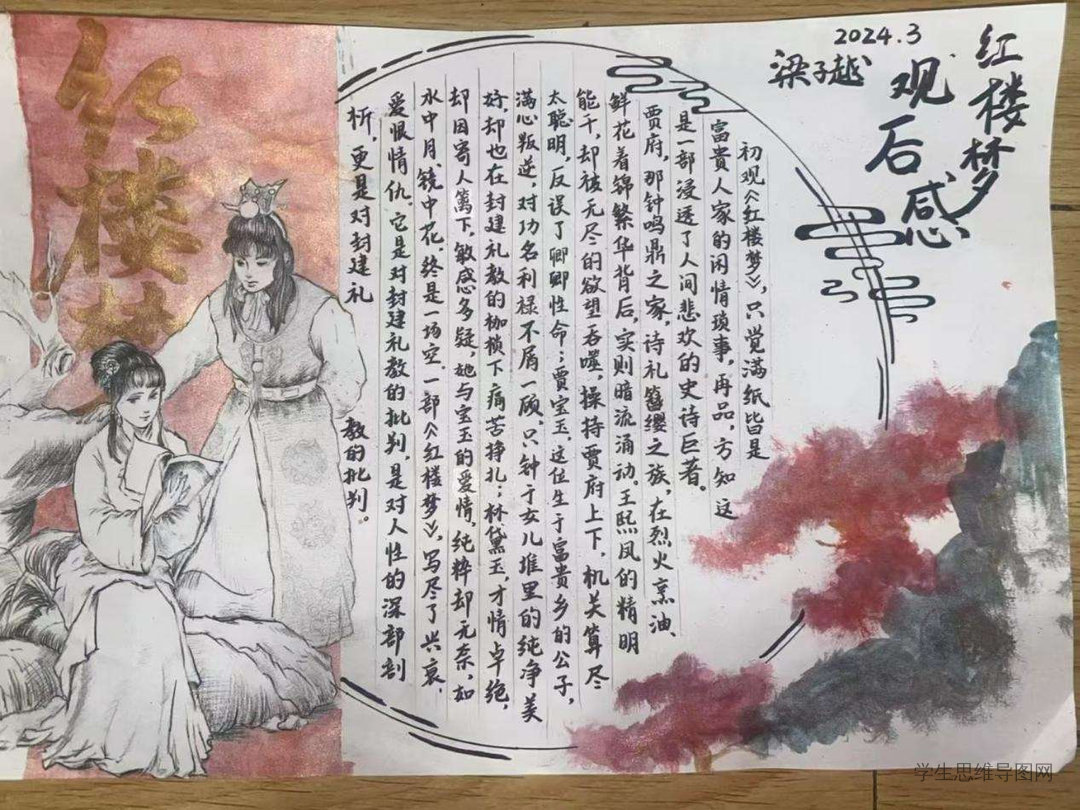 红楼梦
观后感
2024.3
梁子越
初观《红楼梦》，只觉满纸皆是
富贵人家的闲情琐事，再品，方知这
是一部浸透了人间悲欢的史诗巨著。
贾府，那钟鸣鼎之家，诗礼簪缨之族，在烈火烹油、
鲜花着锦繁华背后，实则暗流涌动。王熙凤的精明
能干，却被无尽的欲望吞噬，操持贾府上下，机关算尽
太聪明，反误了卿卿性命；贾宝玉，这位生于富贵乡的公子，
满心叛逆，对功名利禄不屑一顾，只钟于女儿堆里的纯净美
好，却也在封建礼教的枷锁下痛苦挣扎；林黛玉，才情卓绝，
却因寄人篱下，敏感多疑，她与宝玉的爱情，纯粹却无奈，如
水中月，镜中花，终是一场空。一部《红楼梦》，写尽了兴衰，
爱恨情仇。它是对封建礼教的批判，是对人性的深部剖
析，更是对封建礼
教的批判。
红楼梦
学生思维导图网